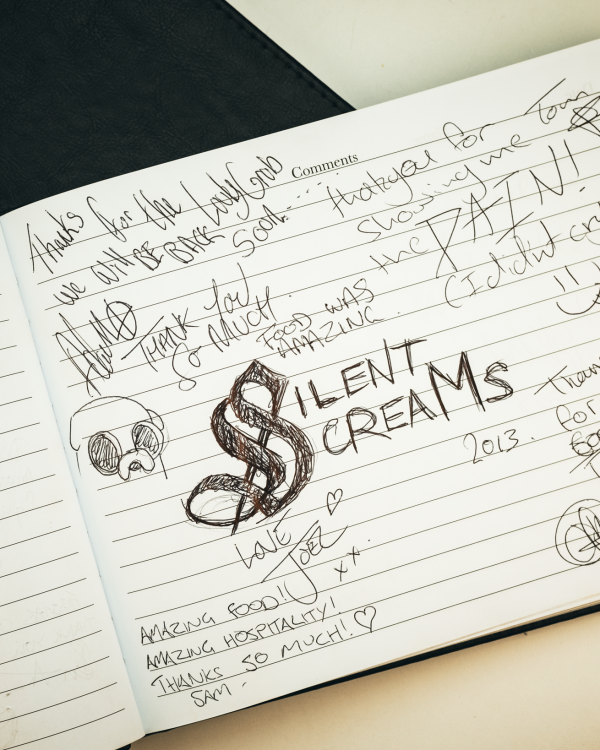 Comments
thanks for the lovely Grub
we will BE BACK soon.....
THANK YOU
SO MUCH.
FOOD WAS
AMAZING.
thankyou for
showing me Town
the PAIN!
(I didn't cry
SILENT
SCREAMS
2013.
LOVE
JOEL
xx.
Than
for
AMAZING FOOD!
AMAZING HOSPITALITY!
THANKS SO MUCH! ♡
SAM -